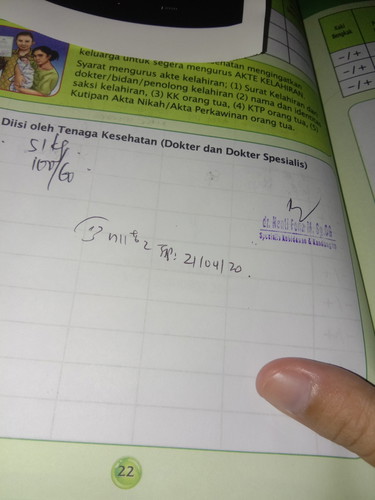 mengingatkan
keluarga untuk segera mengurus AKTE KELAHIRAN
Syarat mengurus akte kelahiran; (1) Surat Kelahiran dari
dokter/bidan/penolong kelahiran (2) nama dan identitas
saksi kelahiran, (3) KK orang tua, (4) KTP orang tua, (5)
Kutipan Akta Nikah/Akta Perkawinan orang tua.
Kaki
Bengkak
-/+
-/+
-/+
Diisi oleh Tenaga Kesehatan (Dokter dan Dokter Spesialis)
51 kg
100/60
Spesialis Kebidanan & Kandungan
21/04/20.
22